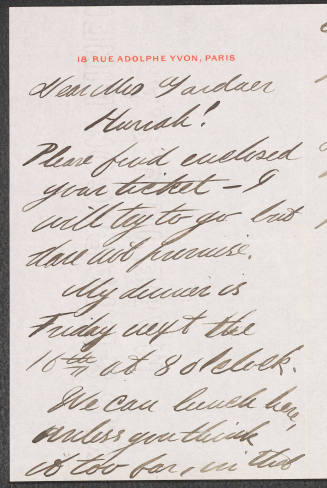 18 RUE ADOLPHE YVON, PARIS
Dear Mrs Gardner
Hurrah!
Please find enclosed
your ticket – I
will try to go but
dare not promise.
My dinner is
Friday next the
16th at 8 o'clock.
We can lunch here,
unless you think
it too far, in the